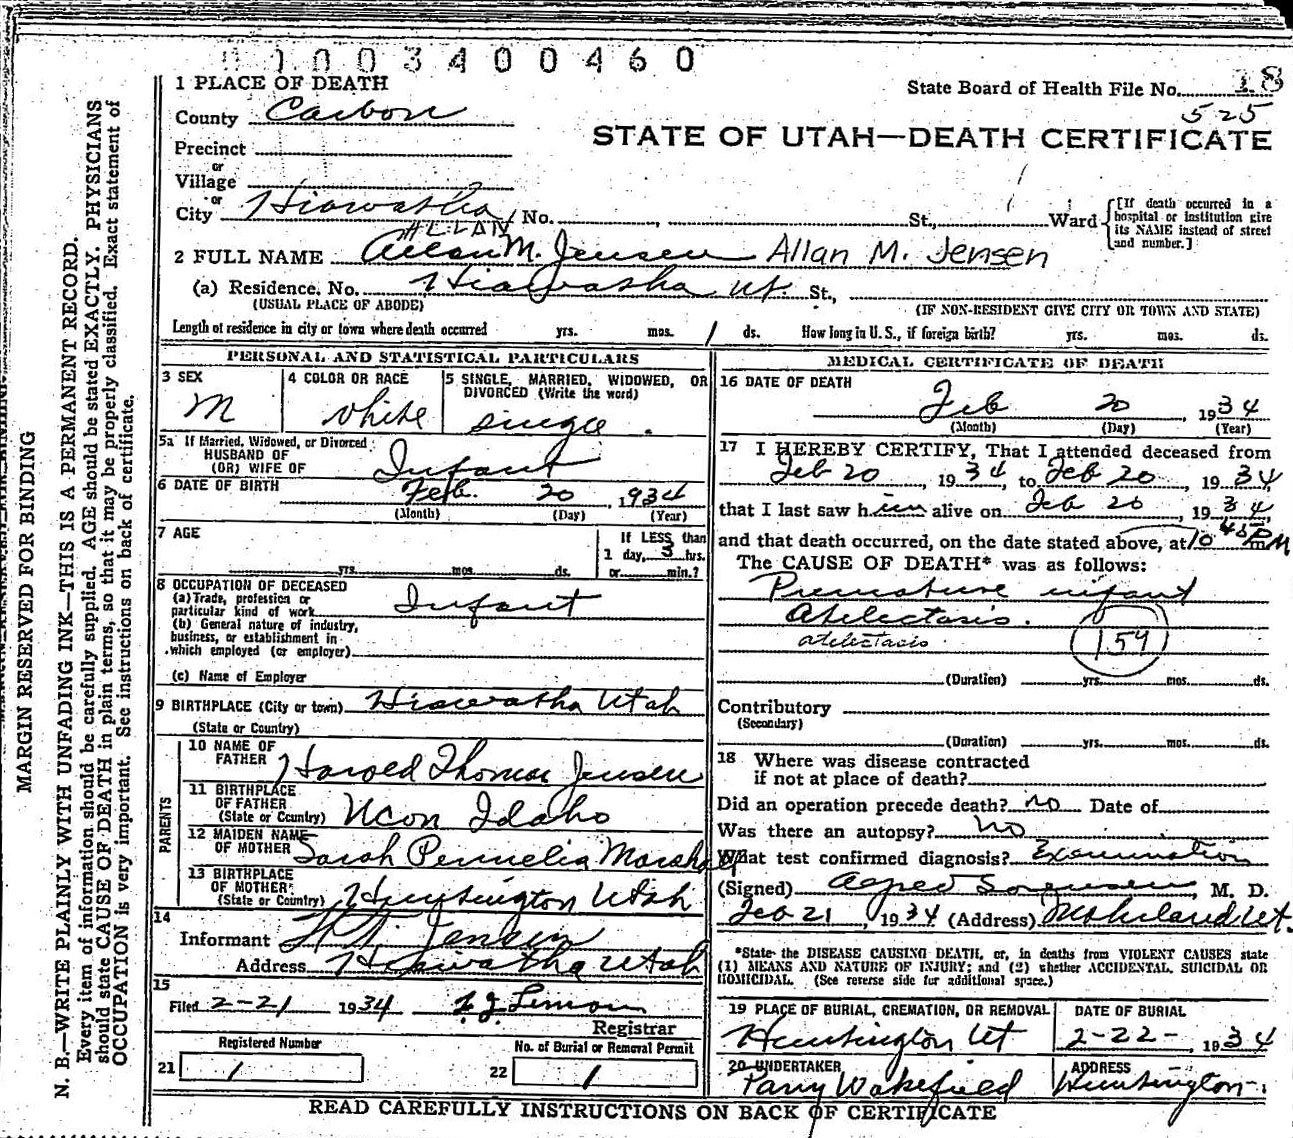 0 1 0 0 3 4 0 0 4 6 0
1 PLACE OF DEATH
State Board of Health File No. 18
County Carbon
525
STATE OF UTAH—DEATH CERTIFICATE
Precinct
or
Village
or
City Hiawatha No. , St., Ward
[If death occurred in a hospital or institution give its NAME instead of street and number.]
ALLAN
2 FULL NAME Allan M. Jensen Allan M. Jensen
(a) Residence. No. Hiawatha Ut. St.,
(USUAL PLACE OF ABODE) (IF NON-RESIDENT GIVE CITY OR TOWN AND STATE)
Length of residence in city or town where death occurred yrs. mos. 1 ds. How long in U.S., if foreign birth? yrs. mos. ds.
PERSONAL AND STATISTICAL PARTICULARS
3 SEX
M
4 COLOR OR RACE
white
5 SINGLE, MARRIED, WIDOWED, OR
DIVORCED (Write the word)
single.
5a If Married, Widowed, or Divorced
HUSBAND OF
(OR) WIFE OF Infant
6 DATE OF BIRTH Feb. 20, 1934
(Month) (Day) (Year)
7 AGE
yrs. mos. ds.
If LESS than
1 day, 3 hrs.
or min.?
8 OCCUPATION OF DECEASED
(a) Trade, profession or
particular kind of work Infant
(b) General nature of industry,
business, or establishment in
which employed (or employer)
(c) Name of Employer
9 BIRTHPLACE (City or town) Hiawatha Utah
(State or Country)
PARENTS
10 NAME OF
FATHER Harold Thomas Jensen
11 BIRTHPLACE
OF FATHER
(State or Country) Ucon Idaho
12 MAIDEN NAME
OF MOTHER Sarah Permelia Marshall
13 BIRTHPLACE
OF MOTHER
(State or Country) Huntington Utah
14
Informant H.T. Jensen
Address Hiawatha Utah
15
Filed 2-21 1934
Registrar
Registered Number
21 1
No. of Burial or Removal Permit
22 1
MEDICAL CERTIFICATE OF DEATH
16 DATE OF DEATH
Feb 20, 1934
(Month) (Day) (Year)
17 I HEREBY CERTIFY, That I attended deceased from
Feb 20, 1934, to Feb 20, 1934,
that I last saw him alive on Feb 20, 1934,
and that death occurred, on the date stated above, at 10 45 PM
The CAUSE OF DEATH* was as follows:
Premature infant
Atelectasis.
atelectasis
159
(Duration) yrs. mos. ds.
Contributory
(Secondary)
(Duration) yrs. mos. ds.
18 Where was disease contracted
if not at place of death?
Did an operation precede death? no Date of
Was there an autopsy? no
What test confirmed diagnosis? Examination
(Signed) Sorensen, M. D.
Feb 21, 1934 (Address)
*State the DISEASE CAUSING DEATH, or, in deaths from VIOLENT CAUSES state
(1) MEANS AND NATURE OF INJURY; and (2) whether ACCIDENTAL, SUICIDAL OR
HOMICIDAL. (See reverse side for additional space.)
19 PLACE OF BURIAL, CREMATION, OR REMOVAL
Huntington Ut
DATE OF BURIAL
2-22-, 1934
20 UNDERTAKER
Parry Wakefield
ADDRESS
Huntington
READ CAREFULLY INSTRUCTIONS ON BACK OF CERTIFICATE
MARGIN RESERVED FOR BINDING
N. B.—WRITE PLAINLY WITH UNFADING INK—THIS IS A PERMANENT RECORD.
Every item of information should be carefully supplied. AGE should be stated EXACTLY. PHYSICIANS
should state CAUSE OF DEATH in plain terms, so that it may be properly classified. Exact statement of
OCCUPATION is very important. See instructions on back of certificate.